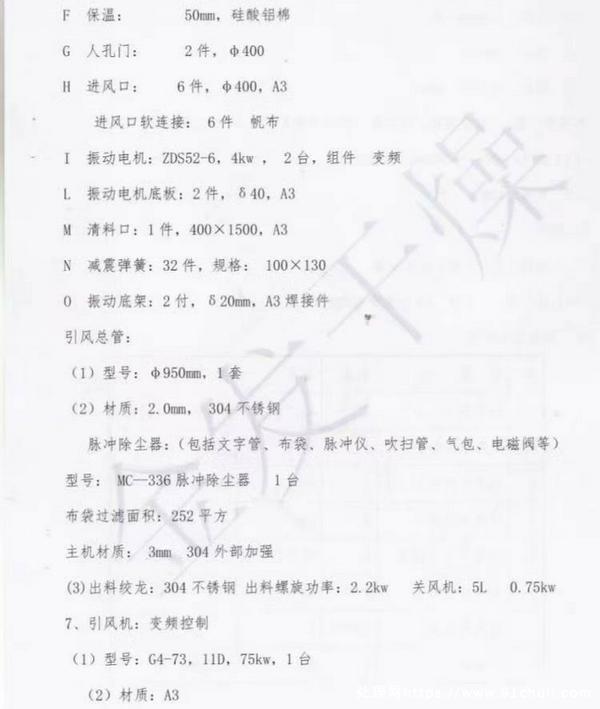 F 保温： 50mm，硅酸铝棉
G 人孔门： 2 件，φ400
H 进风口： 6 件，φ400，A3
进风口软连接：6 件 帆布
I 振动电机：ZDS52-6，4kw ， 2 台，组件 变频
L 振动电机底板：2 件，δ40，A3
M 清料口：1 件，400×1500，A3
N 减震弹簧：32 件，规格：100×130
O 振动底架：2 付，δ20mm，A3 焊接件
引风总管：
（1）型号：φ950mm，1 套
（2）材质：2.0mm， 304 不锈钢
脉冲除尘器：（包括文字管、布袋、脉冲仪、吹扫管、气包、电磁阀等）
型号： MC—336 脉冲除尘器 1 台
布袋过滤面积：252 平方
主机材质： 3mm 304 外部加强
(3)出料绞龙：304 不锈钢 出料螺旋功率：2.2kw 关风机：5L 0.75kw
7、引风机：变频控制
（1）型号：G4-73，11D，75kw，1 台
（2）材质：A3
金发干燥